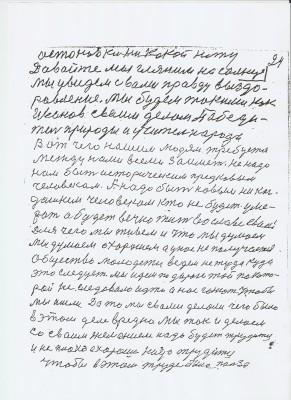 остоновки никокой нету
24
Давайте мы гляним на солнце
мы увидем свами правду выздо-
ровление. мы будем такими как
Иванов своим делом Победи-
тел природы и учител народа
Вот чего нашим людям требуется
между нами всеми Заимет не надо
нам быт историческим предковым
человекам. А надо быт новым ни ког-
дашним человеком кто не будет уми-
рат а будет вечно жит во славе своей
Для чего мы живем и что мы думаем
мы думаем о хорошем а у нас не получается
Общество молодежи верен не туда куда
это следует мы идем по дороге той по кото-
рой не следовало идти а нас гонят чтобы
мы шли. Да то мы своим делом чего было
в этом деле вредно мы так и делаем
со своим желанием надо будет трудится
и не плохо а хорошо надо трудится
чтобы в этом труде была полза